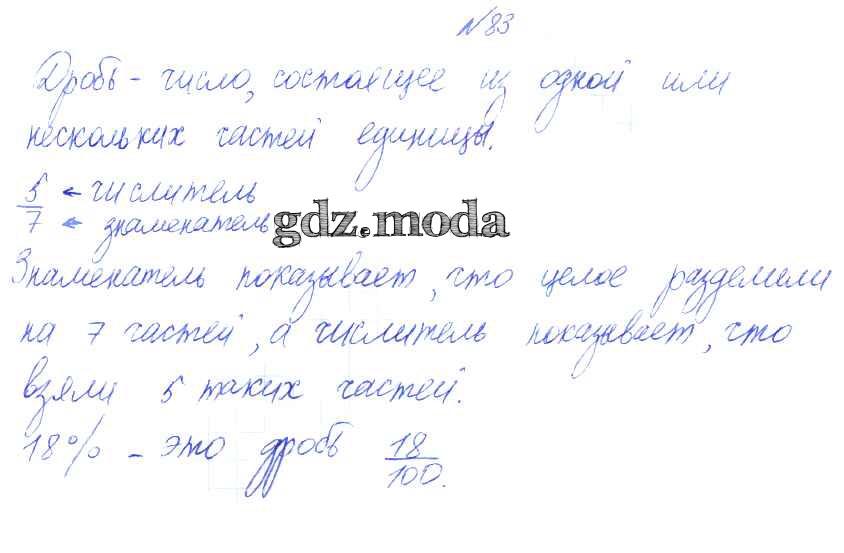 №83
Дробь - число, состоящее из одной или
нескольких частей единицы.
5 ← числитель
7 ← знаменатель
gdz.moda
Знаменатель показывает, что целое разделили
на 7 частей, а числитель показывает, что
взяли 5 таких частей.
18% - это дробь 18/100.